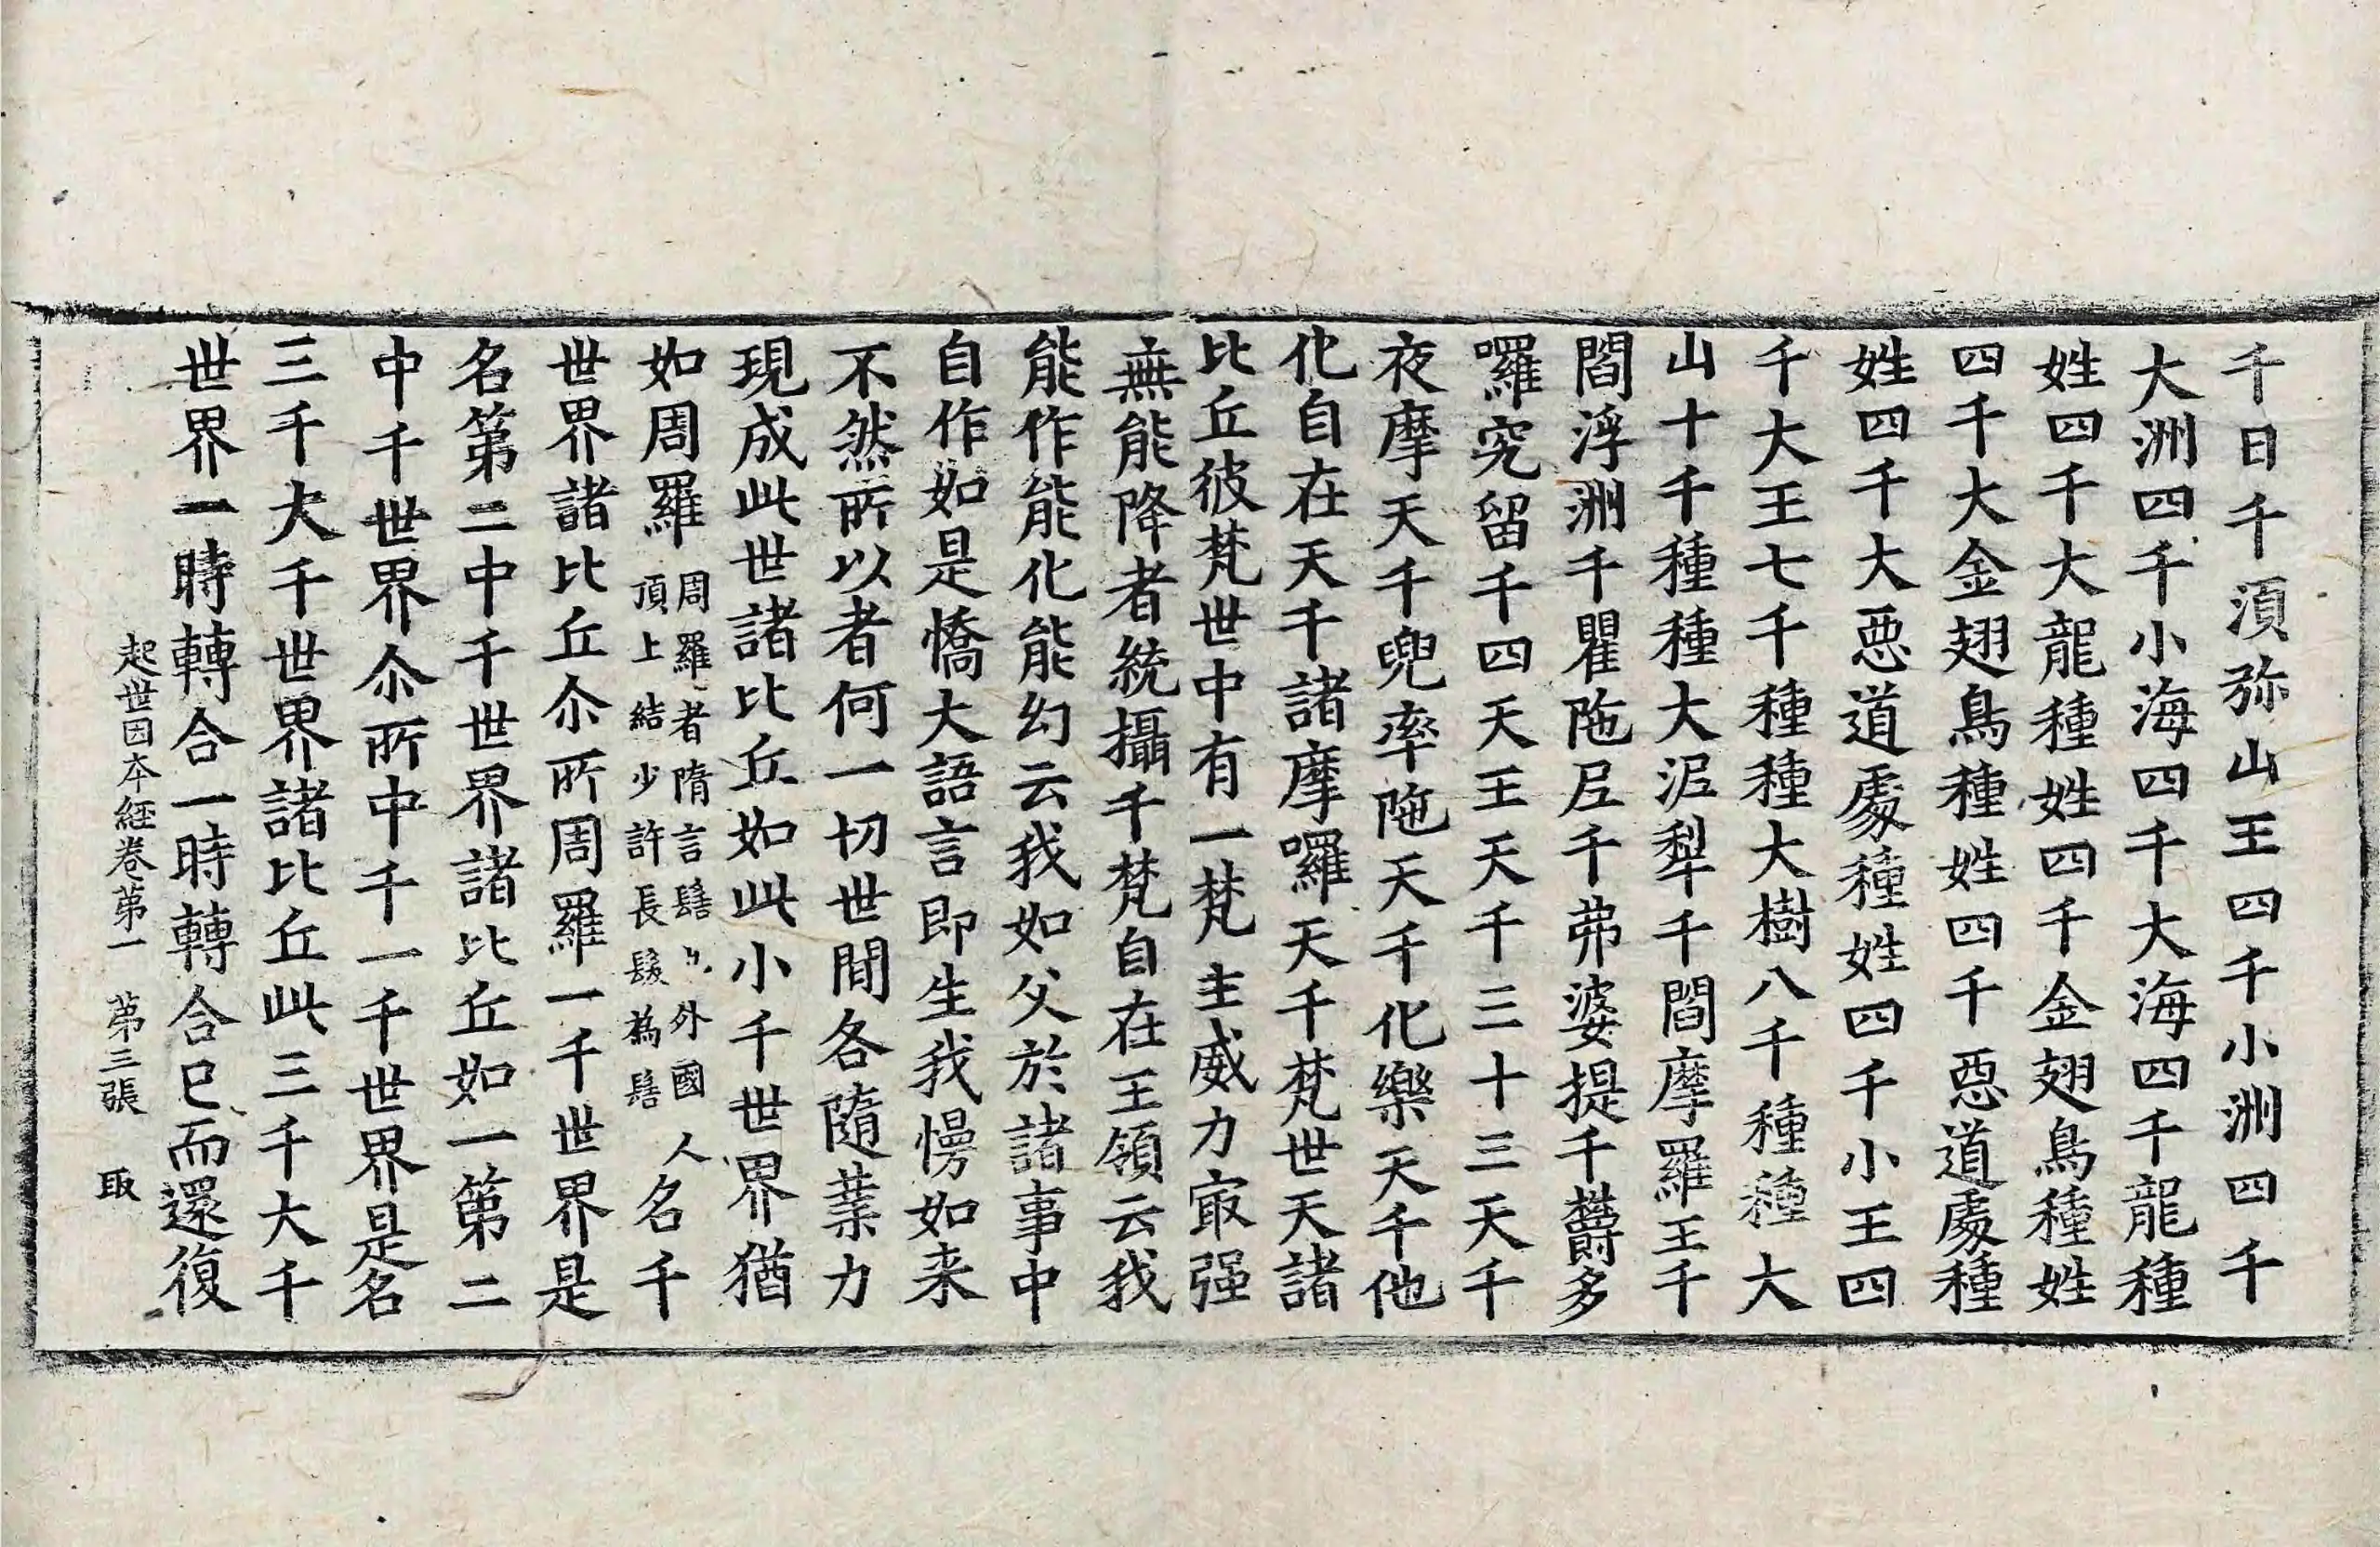 千日千湏弥山王四千小洲四千
大洲四千小海四千大海四千龍種
姓四千大龍種姓四千金翅鳥種姓
四千大金翅鳥種姓四千惡道處種
姓四千大惡道處種姓四千小王四
千大王七千種種大樹八千種種大
山十千種種大泥犁千閻摩羅王千
閻浮洲千瞿陁尼千弗婆提千欝多
囉究留千四天王天千三十三天千
夜摩天千兜率陁天千化樂天千他
化自在天千諸摩囉天千梵世天諸
比丘彼梵世中有一梵主威力㝡强
無能降者統攝千梵自在王領云我
能作能化能幻云我如父於諸事中
自作如是憍大語言即生我慢如来
不然所以者何一切世間各隨業力
現成此世諸比丘如此小千世界猶
如周羅周羅者隋言髻也外國人頂上結少許長髮為髻名千
世界諸比丘尒所周羅一千世界是
名第二中千世界諸比丘如一第二
中千世界尒所中千一千世界是名
三千大千世界諸比丘此三千大千
世界一時轉合一時轉合已而還復
起世因本經卷第一 第三張 取